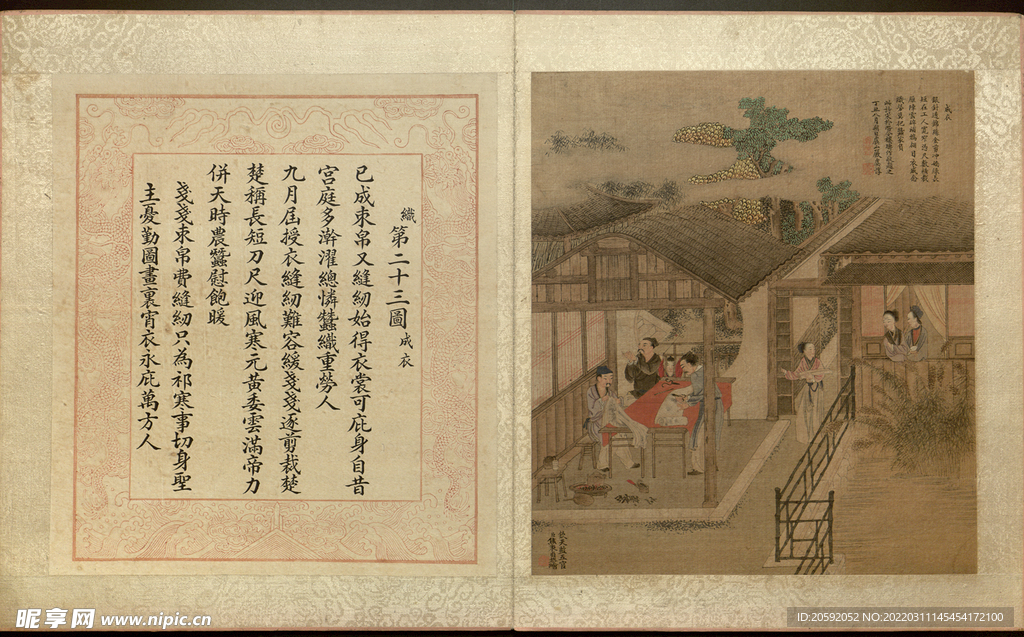 織第二十三圖成衣
已成束帛又縫紉始得衣裳可庇身自昔
宮庭多澣濯總憐蠶織重勞人
九月屆授衣縫紉難容緩戔戔逐剪裁楚
楚稱長短刀尺迎風寒元黃委雲滿帝力
併天時農蠶慰飽暖
戔戔束帛費縫紉只為祁寒事切身聖
主憂勤圖畫裏宵衣永庇萬方人
成衣
欽天監五官
昵享网 www.nipic.cn
ID:20592052 NO:20220311145454172100